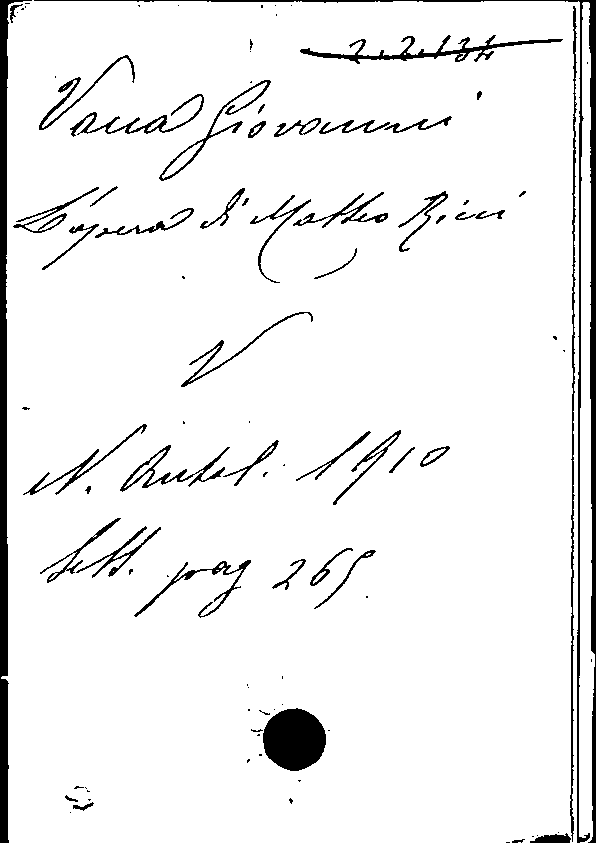 2.2.134
Vacca Giovanni
L'opera di Matteo Ricci
V
N. Antol. 1910
Sett. pag 265